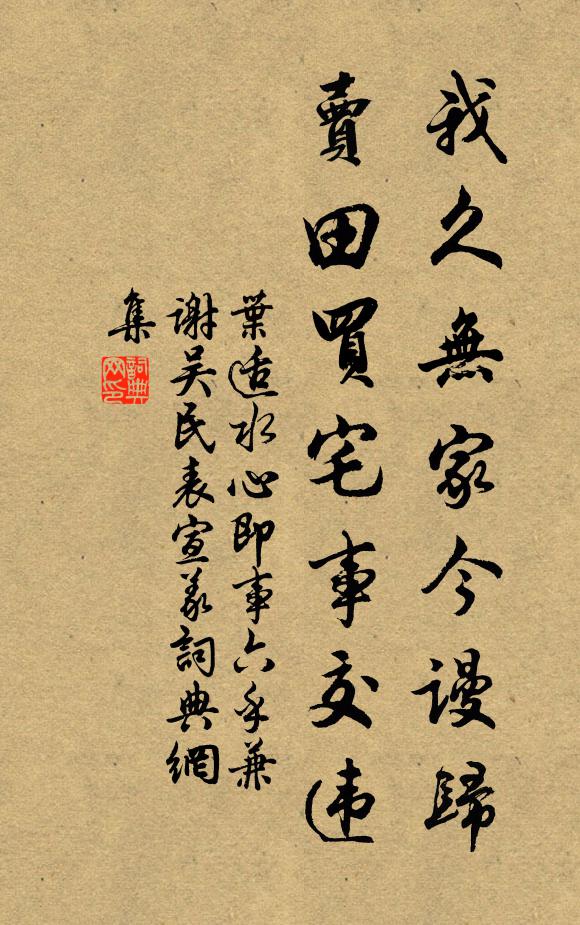 我久無家今謾歸
賣田買宅事交違
葉适水心即事六手兼
謝吴民表宣義詞典網
集
詞典
网印